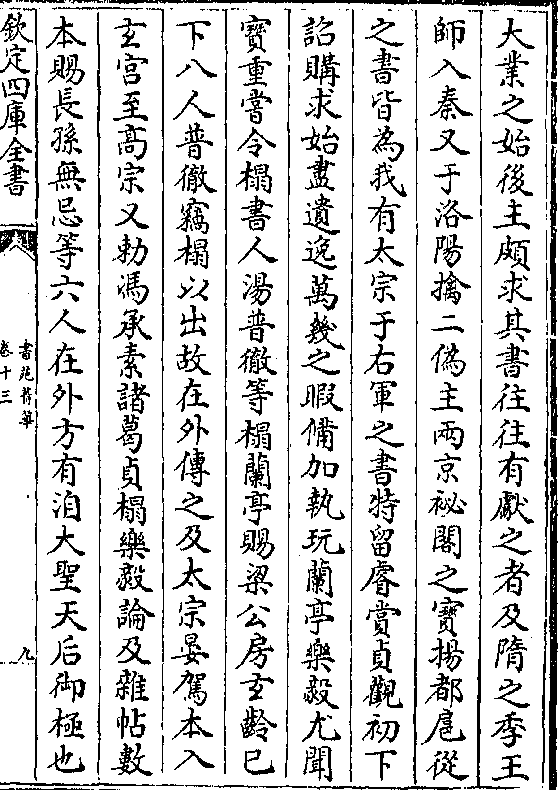 大業之始後主頗求其書往往有獻之者及隋之季王
師入秦又于洛陽擒二偽主兩京祕閣之寶揚都扈從
之書皆為我有太宗于右軍之書特留睿賞貞觀初下
詔購求始盡遺逸萬幾之暇備加執玩蘭亭樂毅尤聞
寶重嘗令榻書人湯普徹等榻蘭亭賜梁公房玄齡已
下八人普徹竊榻以出故在外傳之及太宗晏駕本入
玄宫至高宗又勅馮承素諸葛貞榻樂毅論及雜帖數
本賜長孫無忌等六人在外方有洎大聖天后御極也
欽定四庫全書
書苑菁華
卷十三
九